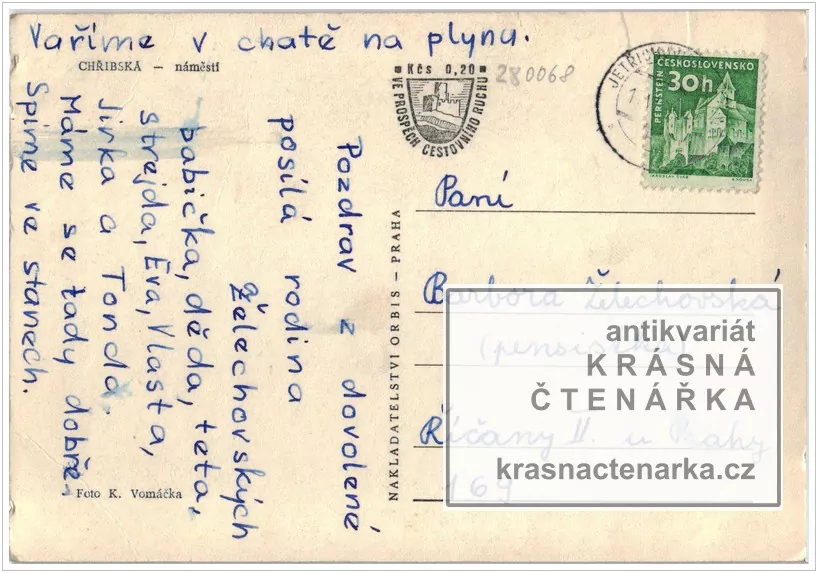 Vaříme v chatě na plynu.
CHŘIBSKÁ — náměstí
Pozdrav z dovolené
posílá rodina
Želechovských
babička, děda, teta,
strejda, Eva, Vlasta,
Jirka a Tonda.
Máme se tady dobře.
Spíme ve stanech.
Foto K. Vomáčka
NAKLADATELSTVÍ ORBIS — PRAHA
Kčs 0,20
VE PROSPĚCH CESTOVNÍHO RUCHU
280068
ČESKOSLOVENSKO
30h
PERNŠTEJN
Paní
Barbora Želechovská
(pensistka)
Říčany II. u Prahy
169
antikvariát
KRÁSNÁ
ČTENÁŘKA
krasnactenarka.cz